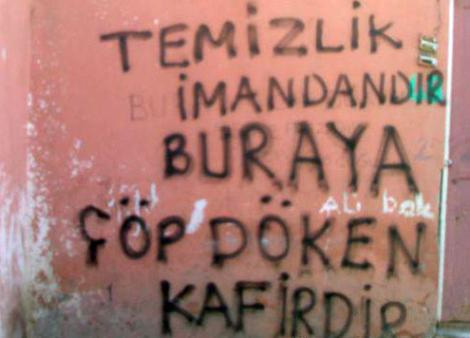 TEMİZLİK
İMANDANDIR
BURAYA
ÇÖP DÖKEN
KAFİRDİR